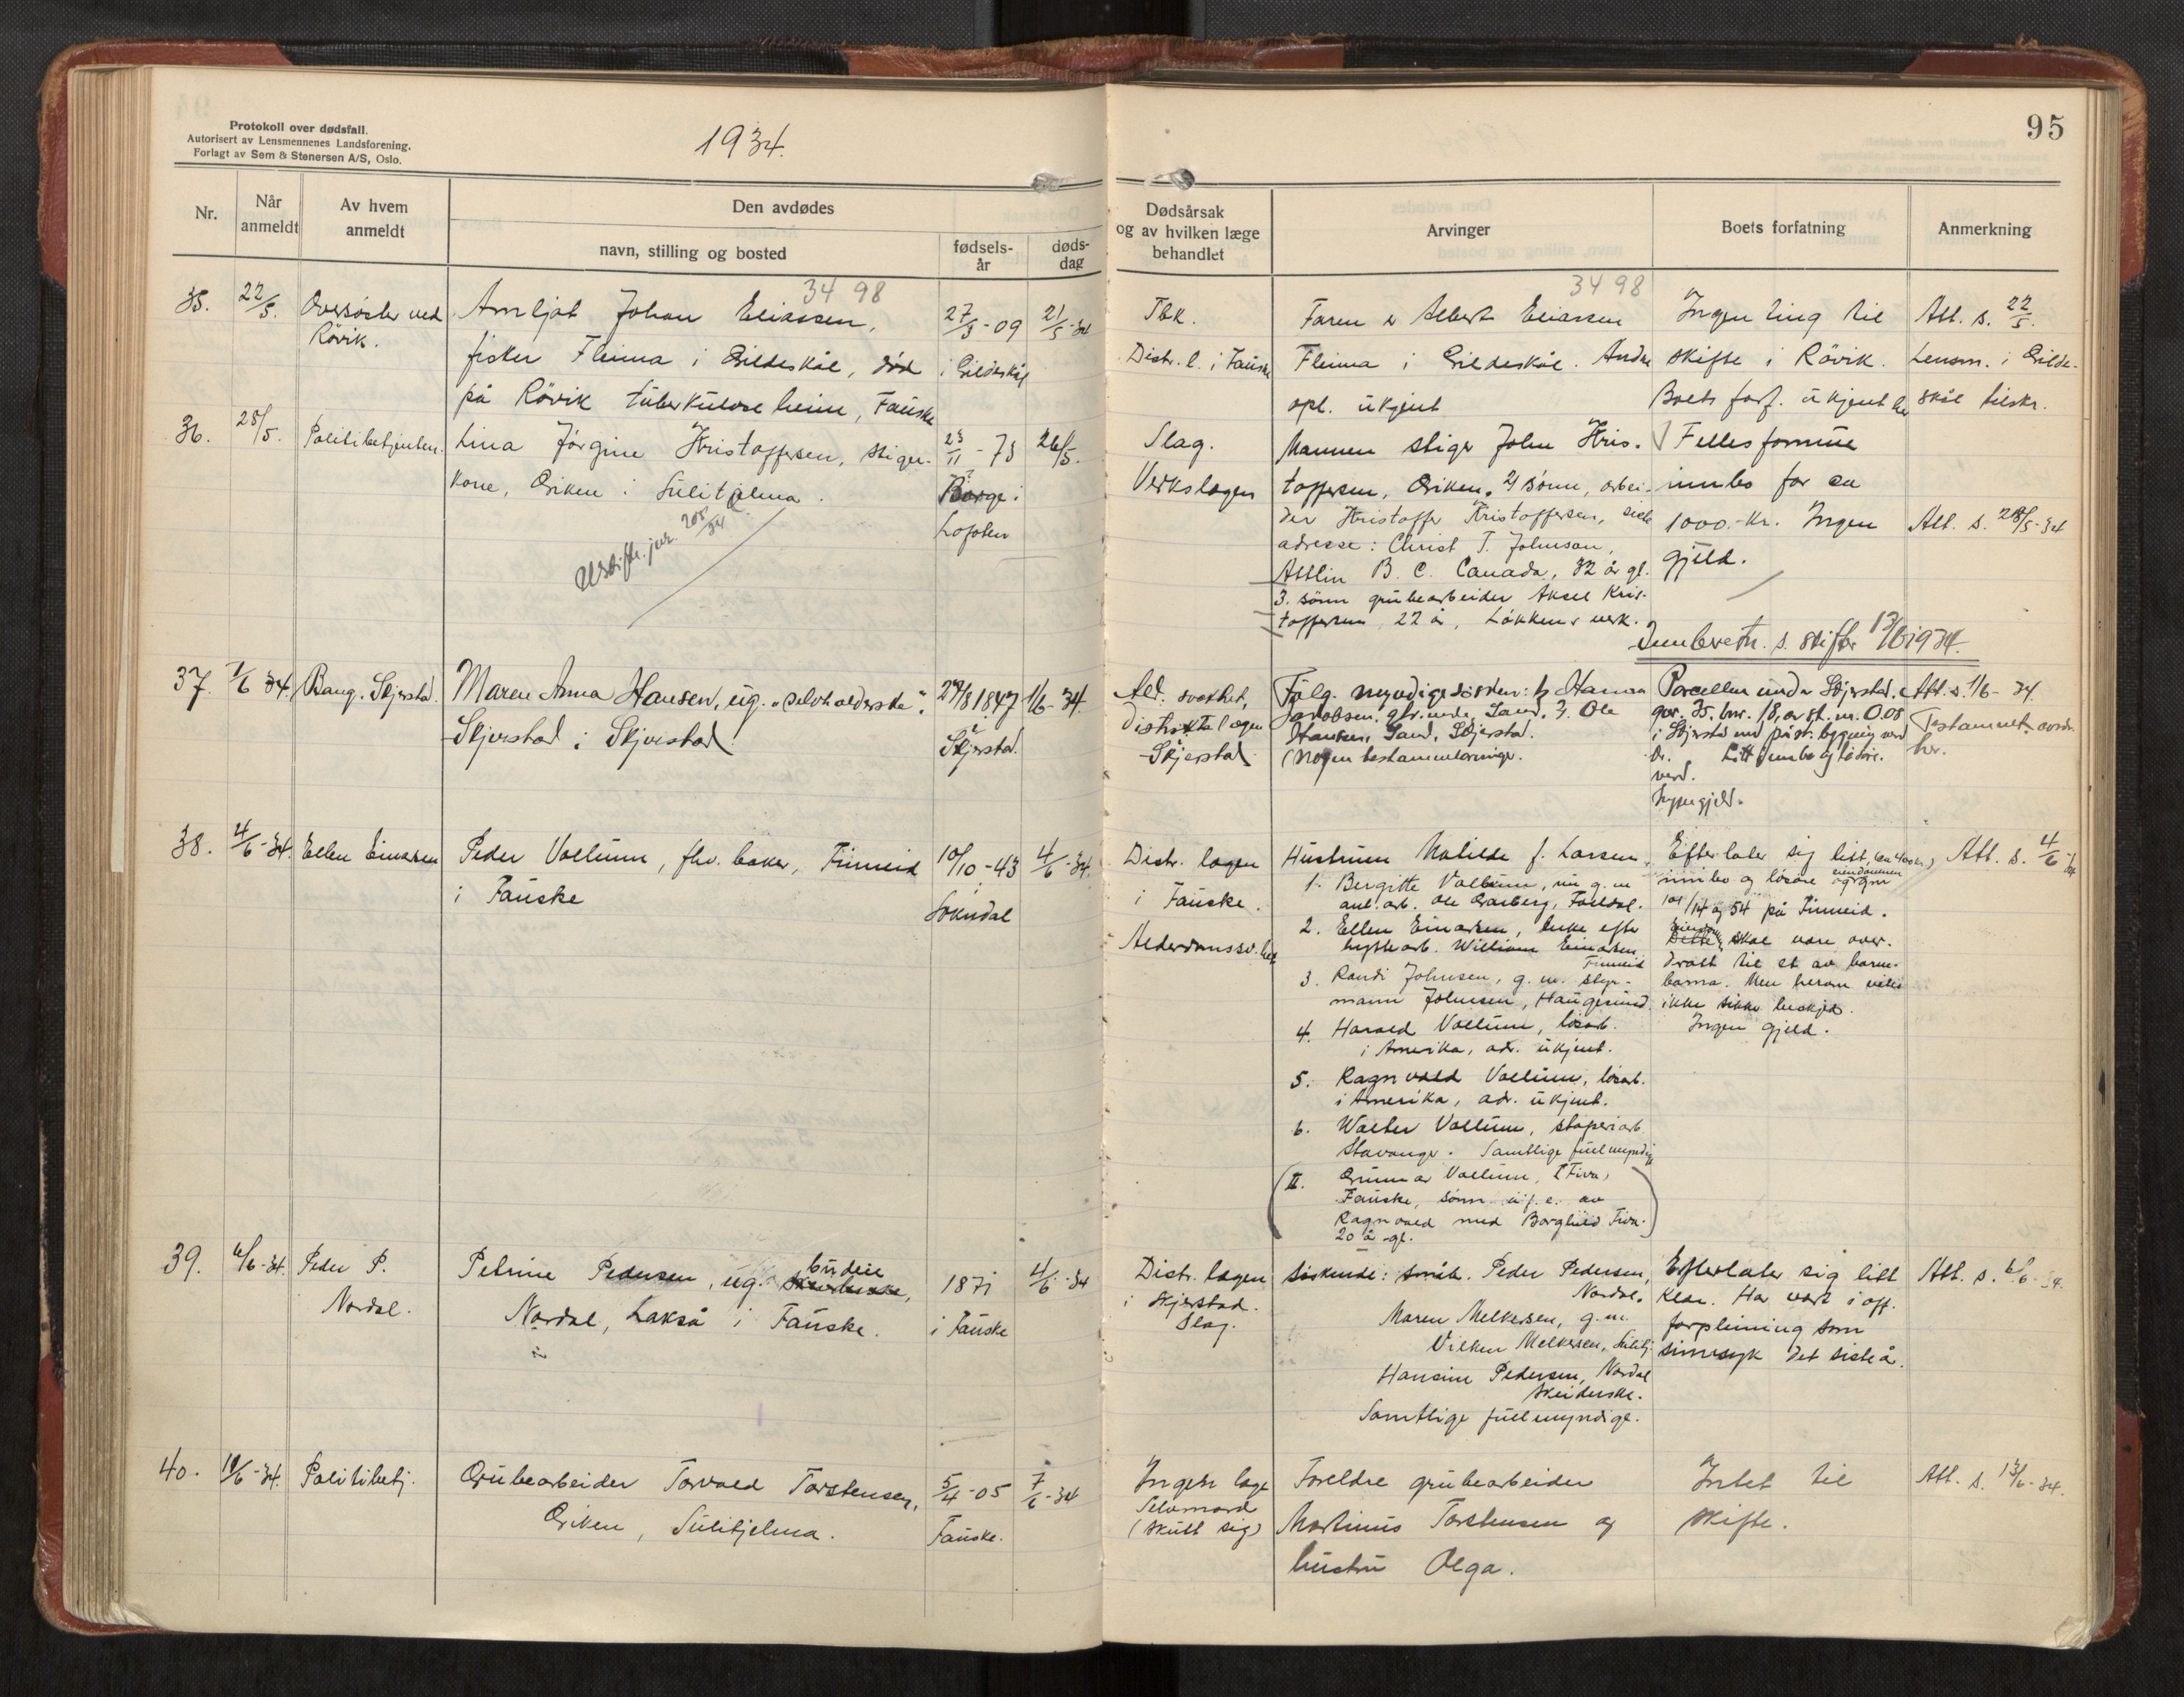 Protokoll over dødsfall.
Autorisert av Lensmennenes Landsforening.
Forlagt av Sem & Stenersen A/S, Oslo.
1934.
95
Nr.
Når anmeldt
Av hvem anmeldt
Den avdødes
navn, stilling og bosted
fødsels-
år
døds-
dag
Dødsårsak
og av hvilken læge
behandlet
Arvinger
Boets forfatning
Anmerkning
34 98
34 98
35.
22/5.
Oversöster ved
Rövik.
Arnljot Johan Eliassen,
fisker Fleina i Gildeskål, död
på Rövik tuberkuloseheim, Fauske
27/3-09
i Gildeskål
21/5-34
Tbk.
Distr. l. i Fauske
Faren er Albert Eliassen
Fleina i Gildeskål. Andre
opl. ukjent
Ingen ting til
skifte i Rövik.
Boets forf. ukjent her
Att. s. 22/5.
Lensm. i Gilde-
skål tilskr.
36.
28/5.
Politibetjenten.
Lina Jörgine Kristoffersen, stiger-
kone, Giken i Sulitjelma.
23/11-73
Borge i
Lofoten
26/5.
Slag.
Verkslægen
Mannen stiger John Kris-
toffersen, Giken. 2) sönn, arbei-
der Kristoffer Kristoffersen, siste
adresse: Christ T. Johnson,
Attlin B. C. Canada, 32 år gl.
3. sönn grubearbeider Aksel Kris-
toffersen 22 år, Løkkens verk.
Felles formue
innbo for ca
1000.- kr. Ingen
gjeld.
Att. s. 28/5-34
Innberetn. s. skifter 13/6 1934.
37.
1/6 34.
Bang. Skjerstad.
Maren Anna Hansen, ug. "selvholderske",
Skjerstad i Skjerstad
27/8 1847
Skjerstad.
1/6-34.
Ald. svakhet,
Distriktslægen
Skjerstad
Fölg. myndige søsken: 1) Hanna
Jakobsen, gbr.enke, Sand, 2. Ole
Hansen, Sand, Skjerstad.
(Nogen testamentarvinger.
Parcellen under Skjerstad,
gnr. 35. bnr. 18, av sk. m. 0.08
i Skjerstad med påst. bygning verd
kr. Litt innbo og lösöre.
verd.
Ingen gjeld.
Att. s. 1/6-34.
Testament
her.
38.
4/6-34.
Ellen Einarsen
Peder Vollum, fhv. baker, Finneid
i Fauske
10/10-43
Sokndal
4/6-34.
Distr. lægen
i Fauske.
Alderdomssv.het
Hustruen Matilde f. Larsen.
1. Bergitte Vollum, nu g. m
anl. arb. Ole Garberg, Folldal.
2. Ellen Einarsen, enke efter
hytte arb. William Einarsen
Finneid
3. Randi Johnsen, g. m. styr-
mann Johnsen, Haugesund.
4. Harald Vollum, lösarb.
i Amerika, adr. ukjent.
5. Ragnvald Vollum, lösarb.
i Amerika, adr. ukjent.
6. Walter Vollum, støperiarb.
Stavanger. Samtlige fullmyndig
(II. Gunnar Vollum, Fiva,
Fauske, sönn u. f. e. av
Ragnvald med Borghild Fiva.)
20 år gl.
Efterlater sig litt, (ca 400 kr.)
innbo og lösöre eiendommen
101/14 og 54 på Finneid.
Eiend. skal være over-
dratt til et av barne-
barna. Men herom vites
ikke sikker beskjed.
Ingen gjeld.
Att. s. 4/6-34
39.
6/6-34.
Peder P.
Nordal.
Petrine Pedersen, ug. budeie
Nordal, Lakså i Fauske.
1871
i Fauske
4/6-34
Distr. lægen
i Skjerstad.
Slag.
Söskende: småbr. Peder Pedersen,
Nordal.
Maren Melkersen, g. m.
Vilken Melkersen, Sulitj.
Hansine Pedersen, Nordal
Samtlige fullmyndige.
Efterlater sig litt
klær. Har vært i off.
forpleining som
sinnssyk det siste år.
Att. s. 6/6-34.
40.
11/6-34.
Politibetj.
Grubearbeider Torvald Torstensen,
Giken, Sulitjelma.
5/4-05
Fauske.
7/6-34
Ingen læge
Selvmord
(skutt sig)
Foreldre grubearbeider
Martinus Torstensen og
hustru Olga.
Intet til
skifte.
Att. s. 13/6-34.